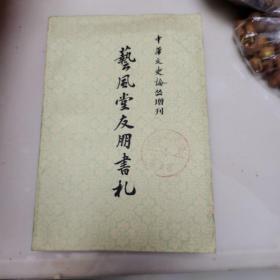 中华文史论丛增刊
藝風堂友朋書札